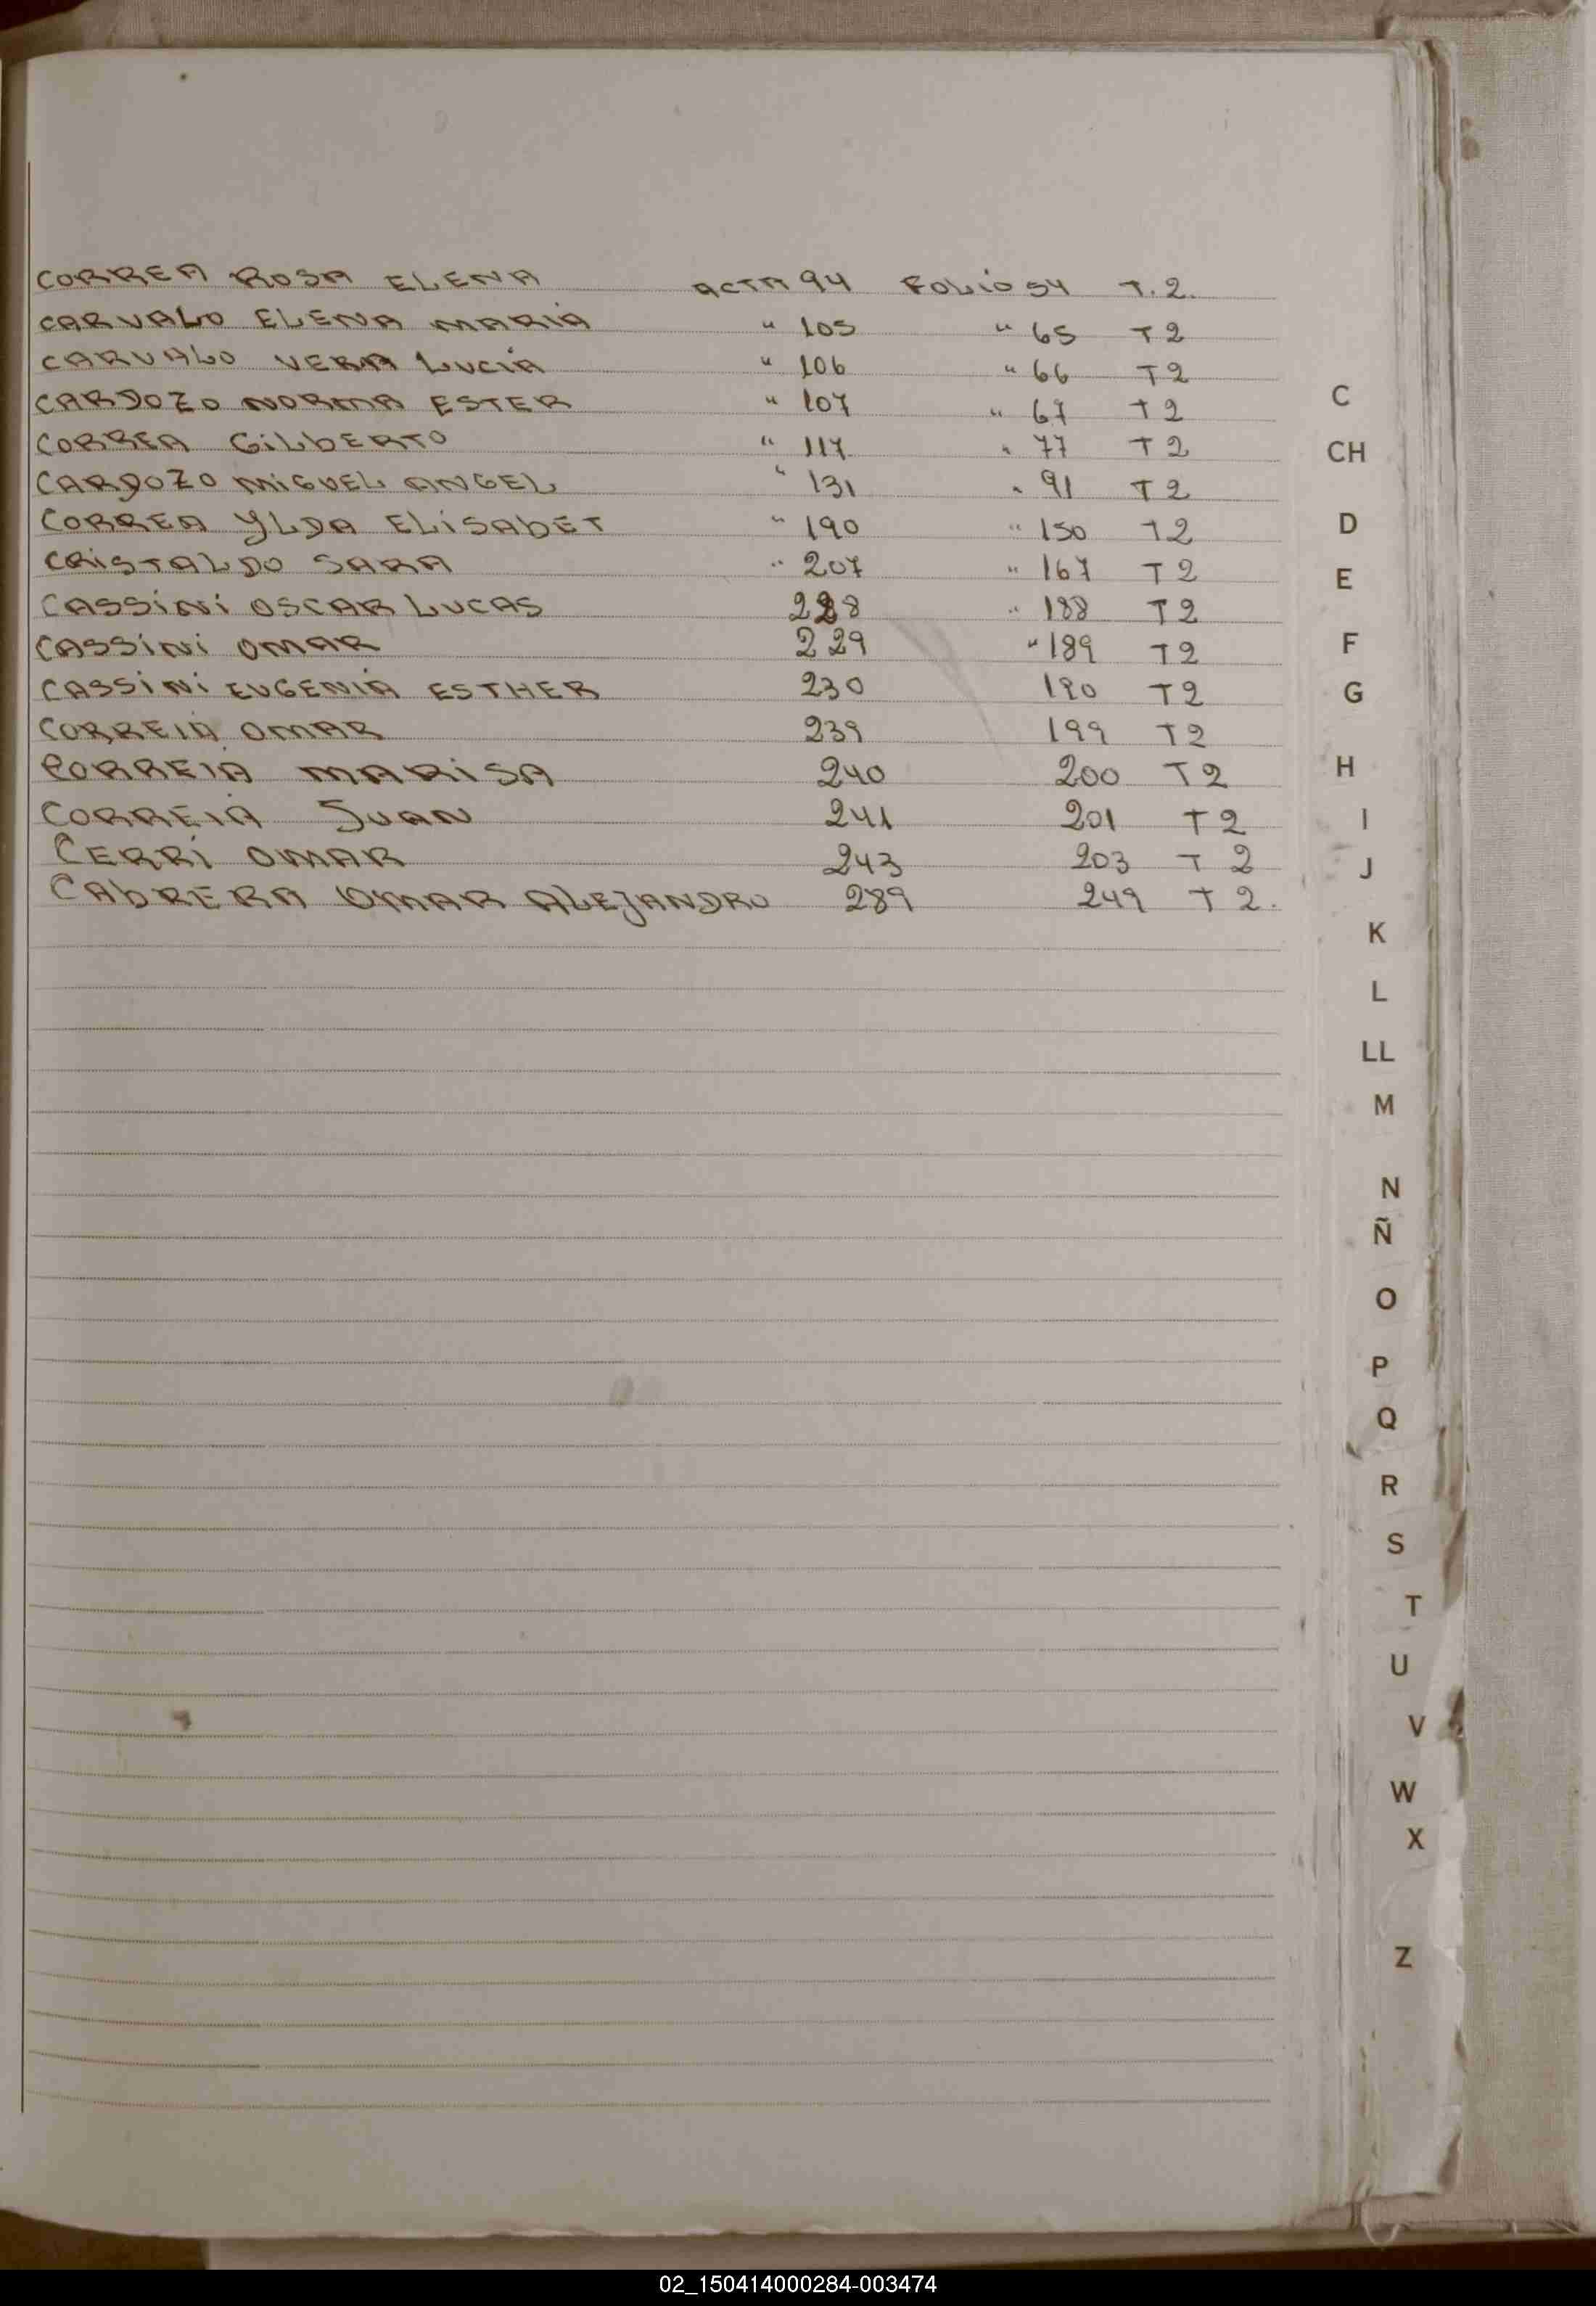 CORREA ROSA ELENA ACTA 94 FOLIO 54 T.2.
CARVALO ELENA MARIA " 105 " 65 T 2
CARVALO VERA LUCIA " 106 " 66 T 2
CARDOZO NORMA ESTER " 107 " 67 T 2
CORREA GILBERTO " 117 " 77 T 2
CARDOZO MIGUEL ANGEL " 131 " 91 T 2
CORREA YLDA ELISABET " 190 " 150 T 2
CRISTALDO SARA " 207 " 167 T 2
CASSINI OSCAR LUCAS 228 " 188 T 2
CASSINI OMAR 229 " 189 T 2
CASSINI EUGENIA ESTHER 230 190 T 2
CORREIA OMAR 239 199 T 2
CORREIA MARISA 240 200 T 2
CORREIA JUAN 241 201 T 2
CERRI OMAR 243 203 T 2
CABRERA OMAR ALEJANDRO 289 249 T 2.
C
CH
D
E
F
G
H
I
J
K
L
LL
M
N
Ñ
O
P
Q
R
S
T
U
V
W
X
Z
02_150414000284-003474